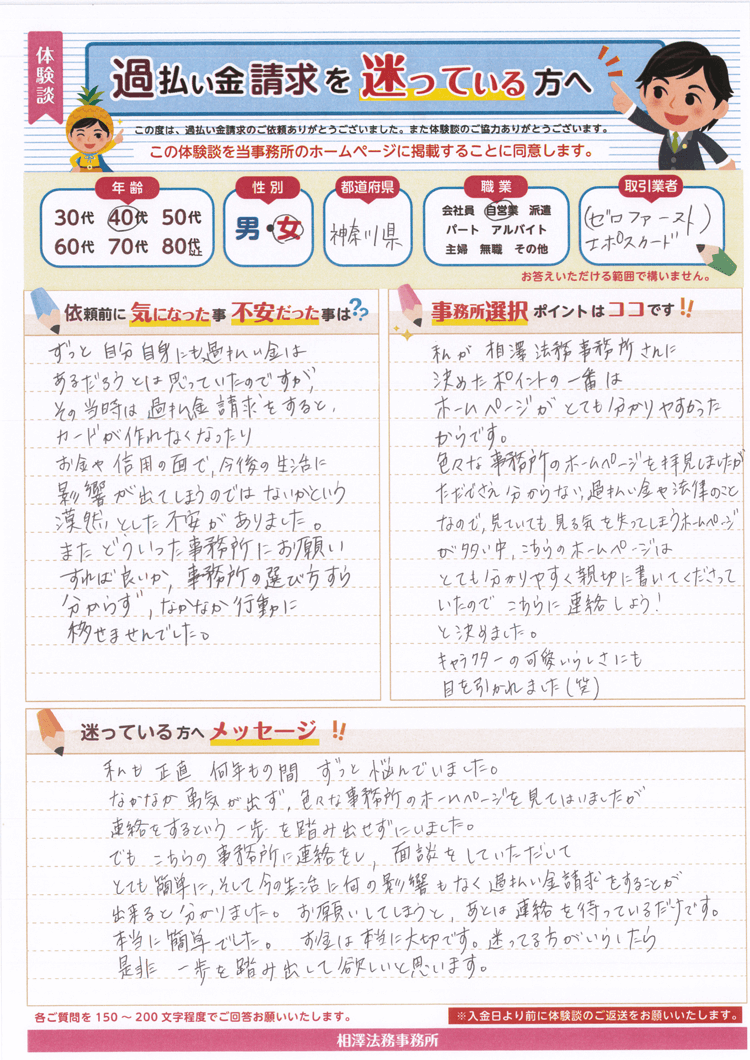 体験談
過払い金請求を迷っている方へ
この度は、過払い金請求のご依頼ありがとうございました。また体験談のご協力ありがとうございます。
この体験談を当事務所のホームページに掲載することに同意します。
年齢
30代 40代 50代
60代 70代 80代以上
性別
男・女
都道府県
神奈川県
職業
会社員 自営業 派遣
パート アルバイト
主婦 無職 その他
取引業者
(ゼロファースト)
エポスカード
お答えいただける範囲で構いません。
依頼前に気になった事 不安だった事は??
ずっと自分自身にも過払い金は
あるだろうとは思っていたのですが、
その当時は過払金請求をすると、
カードが作れなくなったり
お金や信用の面で、今後の生活に
影響が出てしまうのではないかという
漠然とした不安がありました。
またどういった事務所にお願い
すれば良いか、事務所の選び方すら
分からず、なかなか行動に
移せませんでした。
事務所選択ポイントはココです!!
私が相澤法務事務所さんに
決めたポイントの一番は
ホームページがとても分かりやすかった
からです。
色々な事務所のホームページを拝見しましたが
ただでさえ分からない過払い金や法律のこと
なので、見ていても見る気を失ってしまうホームページ
が多い中、こちらのホームページは
とても分かりやすく親切に書いてくださって
いたのでこちらに連絡しよう!
と決めました。
キャラクターの可愛いらしさにも
目を引かれました(笑)
迷っている方へメッセージ!!
私も正直何年もの間ずっと悩んでいました。
なかなか勇気が出ず、色々な事務所のホームページを見てはいましたが
連絡をするという一歩を踏み出せずにいました。
でもこちらの事務所に連絡をし、面談をしていただいて
とても簡単に、そして今の生活に何の影響もなく過払い金請求をすることが
出来ると分かりました。お願いしてしまうと、あとは連絡を待っているだけです。
本当に簡単でした。お金は本当に大切です。迷ってる方がいらしたら
是非一歩を踏み出して欲しいと思います。
各ご質問を150~200文字程度でご回答お願いいたします。
※入金日より前に体験談のご返送をお願いいたします。
相澤法務事務所